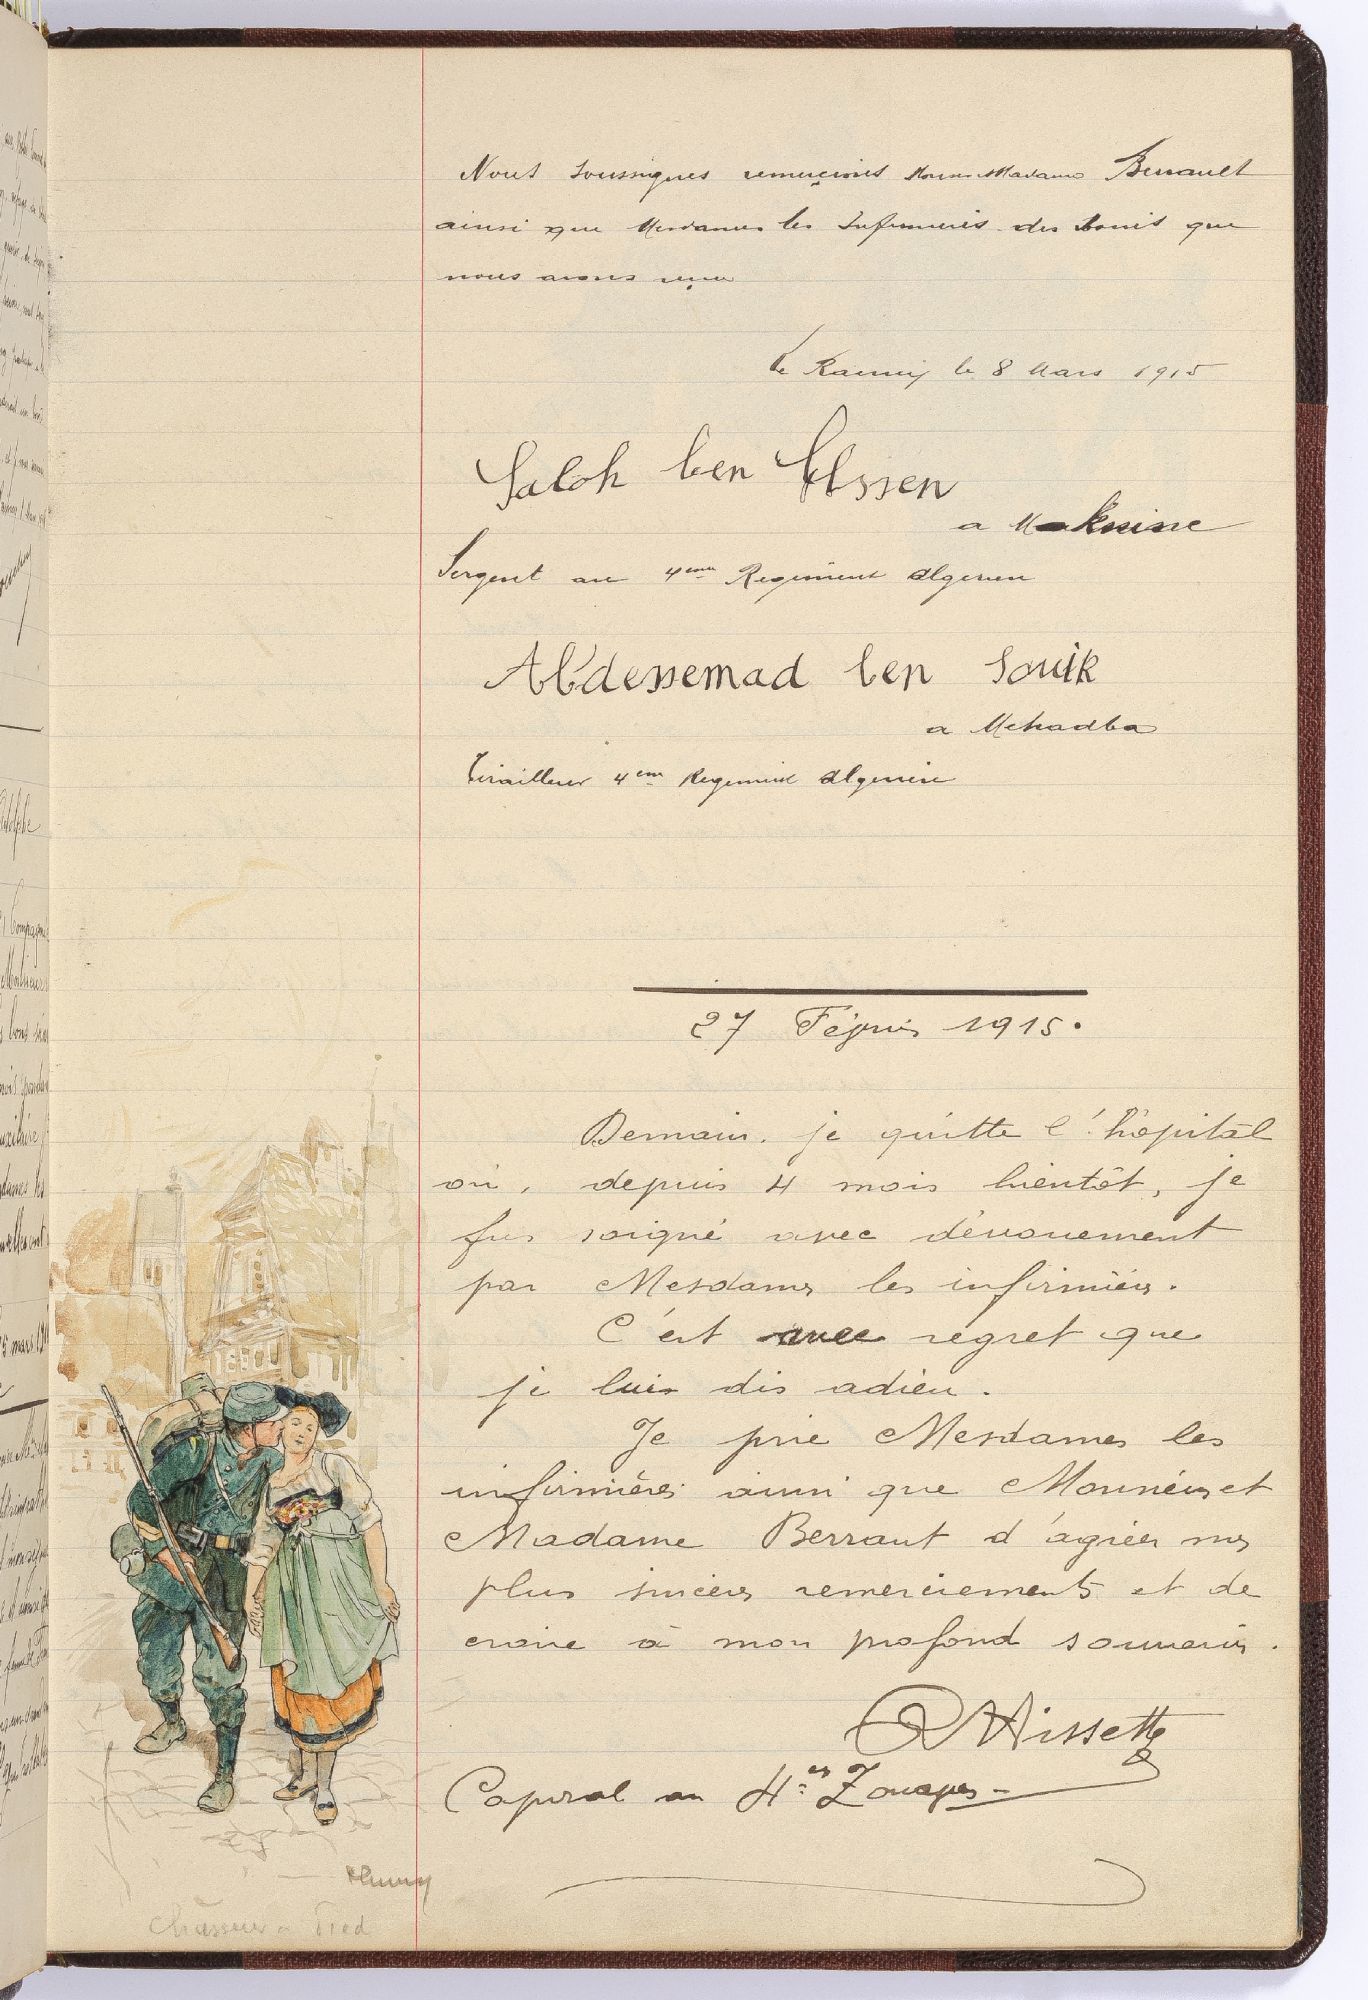 Nous soussignes remerçions Madame Berrault
ainsi que Mesdames les Infirmieres des soins que
nous avons reçu
le Raincy le 8 Mars 1915
Salah ben Hssen
a Moknine
Sergent au 4eme Regiment algerien
Abdessemad ben Souik
a Mehadba
Tirailleur 4eme Regiment algerien
27 Février 1915.
Demain, je quitte l'hôpital
où, depuis 4 mois bientôt, je
fus soigné avec dévouement
par Mesdames les infirmières.
C'est avec regret que
je leur dis adieu.
Je prie Mesdames les
infirmières ainsi que Monsieur et
Madame Berraut d'agréer mes
plus sincères remerciements et de
croire à mon profond souvenir.
Hissette
Caporal au 4es Zouaves
Chasseur a Pied